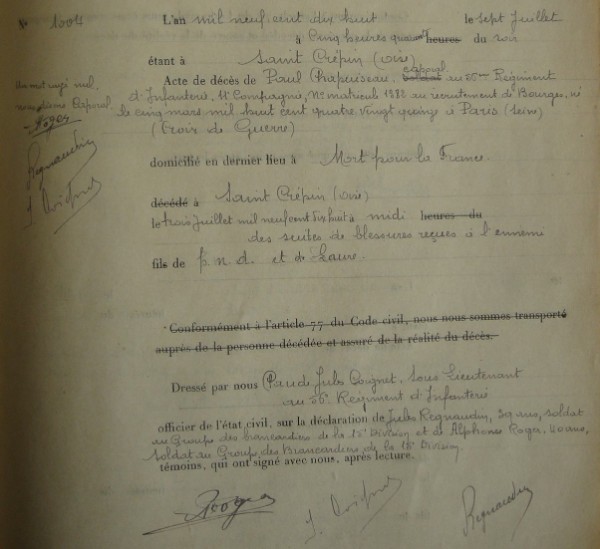 N° 1004
L'an mil neuf cent dix huit le sept Juillet
à Cinq heures heures du soir
étant à Saint Crépin (oise)
Acte de décès de Paul Chapuiseau, caporal Soldat au 56me Régiment
d'Infanterie, 11e Compagnie, No matricule 1882 au recrutement de Bourges, né
le cinq mars mil huit cent quatre vingt quinze à Paris (Seine)
(Croix de Guerre)
Un mot rayé nul.
Caporal
Roger
Regnaudin
J. Coignet
domicilié en dernier lieu à Mort pour la France.
décédé à Saint Crépin (oise)
le trois Juillet mil neuf cent dix huit à midi heures du
des suites de blessures reçues à l'ennemi
fils de p. n. d. et de Laure.
Conformément à l'article 77 du Code civil, nous nous sommes transporté
auprès de la personne décédée et assuré de la réalité du décès.
Dressé par nous Claude Jules Coignet, sous Lieutenant
au 56e Régiment d'Infanterie
officier de l'état civil, sur la déclaration de Jules Regnaudin, 39 ans, soldat
au Groupe des brancardiers de la 15e Division et de Alphonse Roger, 40 ans,
soldat au Groupe des Brancardiers de la 15e Division,
témoins, qui ont signé avec nous, après lecture.
Roger
J. Coignet
Regnaudin